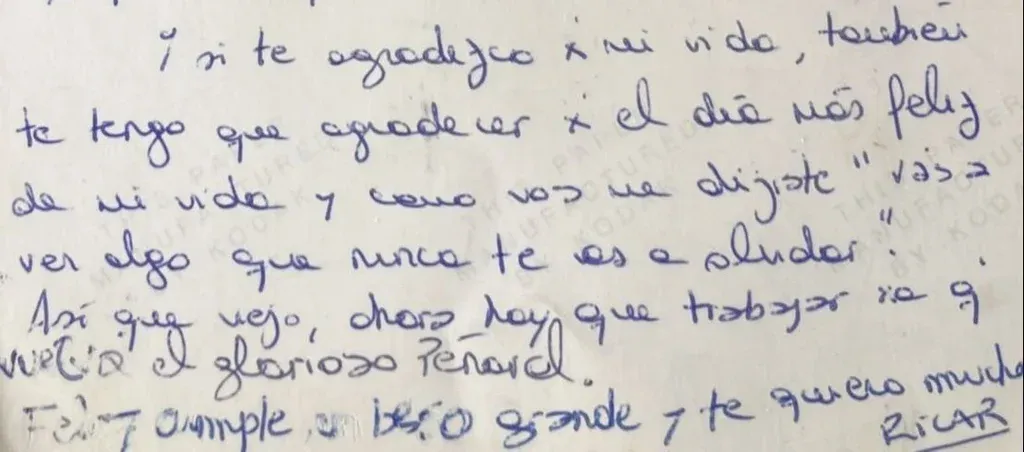 Y si te agradezco x mi vida, también
te tengo que agradecer x el día más feliz
de mi vida y como vos me dijiste "vas a
ver algo que nunca te vas a olvidar".
Así que viejo, ahora hay que trabajar xa q'
vuelva el glorioso Peñarol.
Feliz cumple, un beso grande y te quiero mucho
RICAR